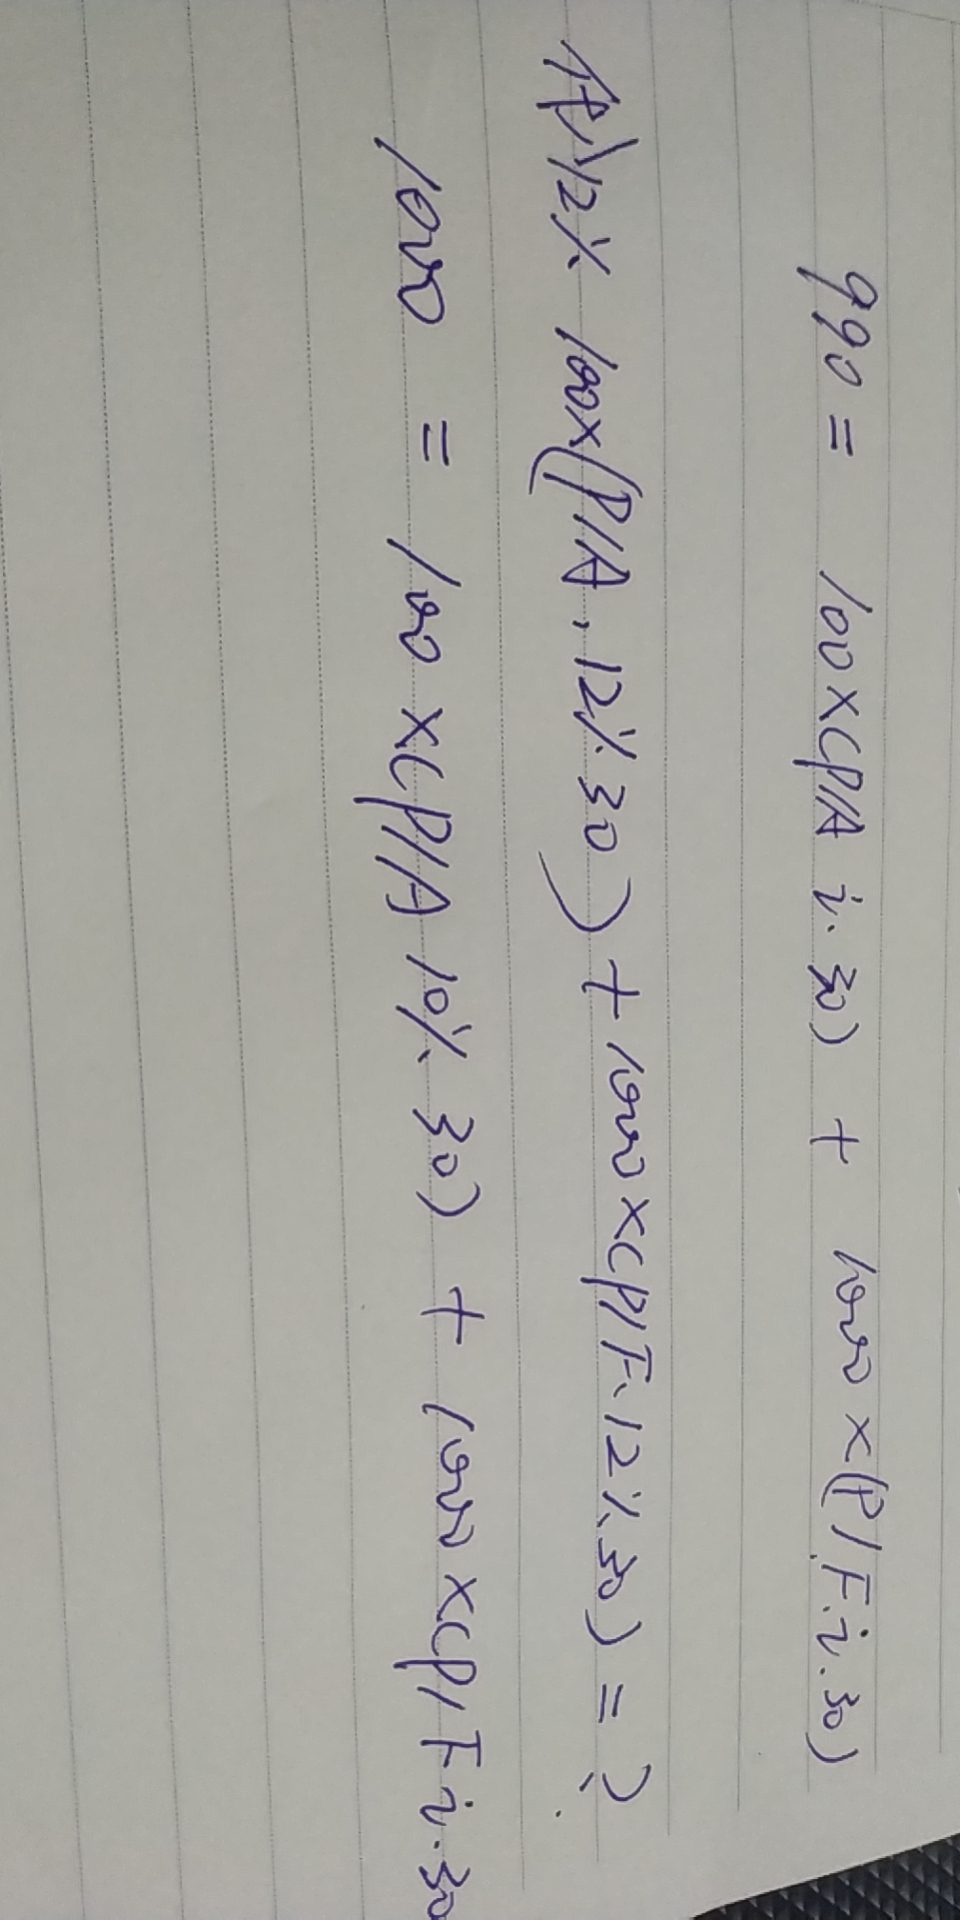 990 = 100×(P/A i.30) + 1000×(P/F.i.30)
代入12% 100×(P/A,12%30)+1000×(P/F.12%.30)=?
1000 = 100×(P/A 10% 30) + 1000×(P/F i.30